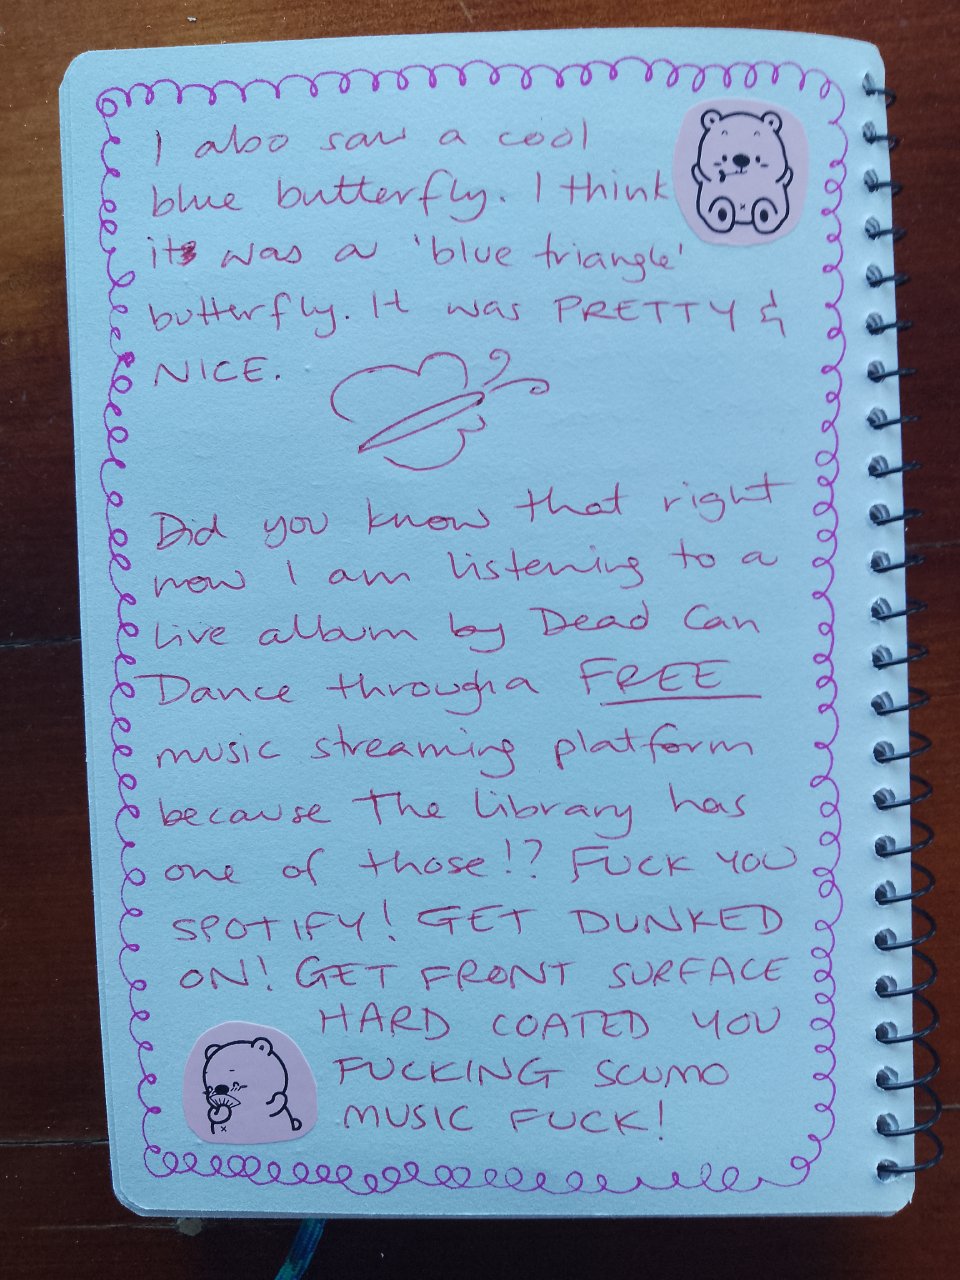 I also saw a cool
blue butterfly. I think
it was a 'blue triangle'
butterfly. It was PRETTY &
NICE.
Did you know that right
now I am listening to a
live album by Dead Can
Dance through a FREE
music streaming platform
because the library has
one of those!? FUCK YOU
SPOTIFY! GET DUNKED
ON! GET FRONT SURFACE
HARD COATED YOU
FUCKING SCUMO
MUSIC FUCK!